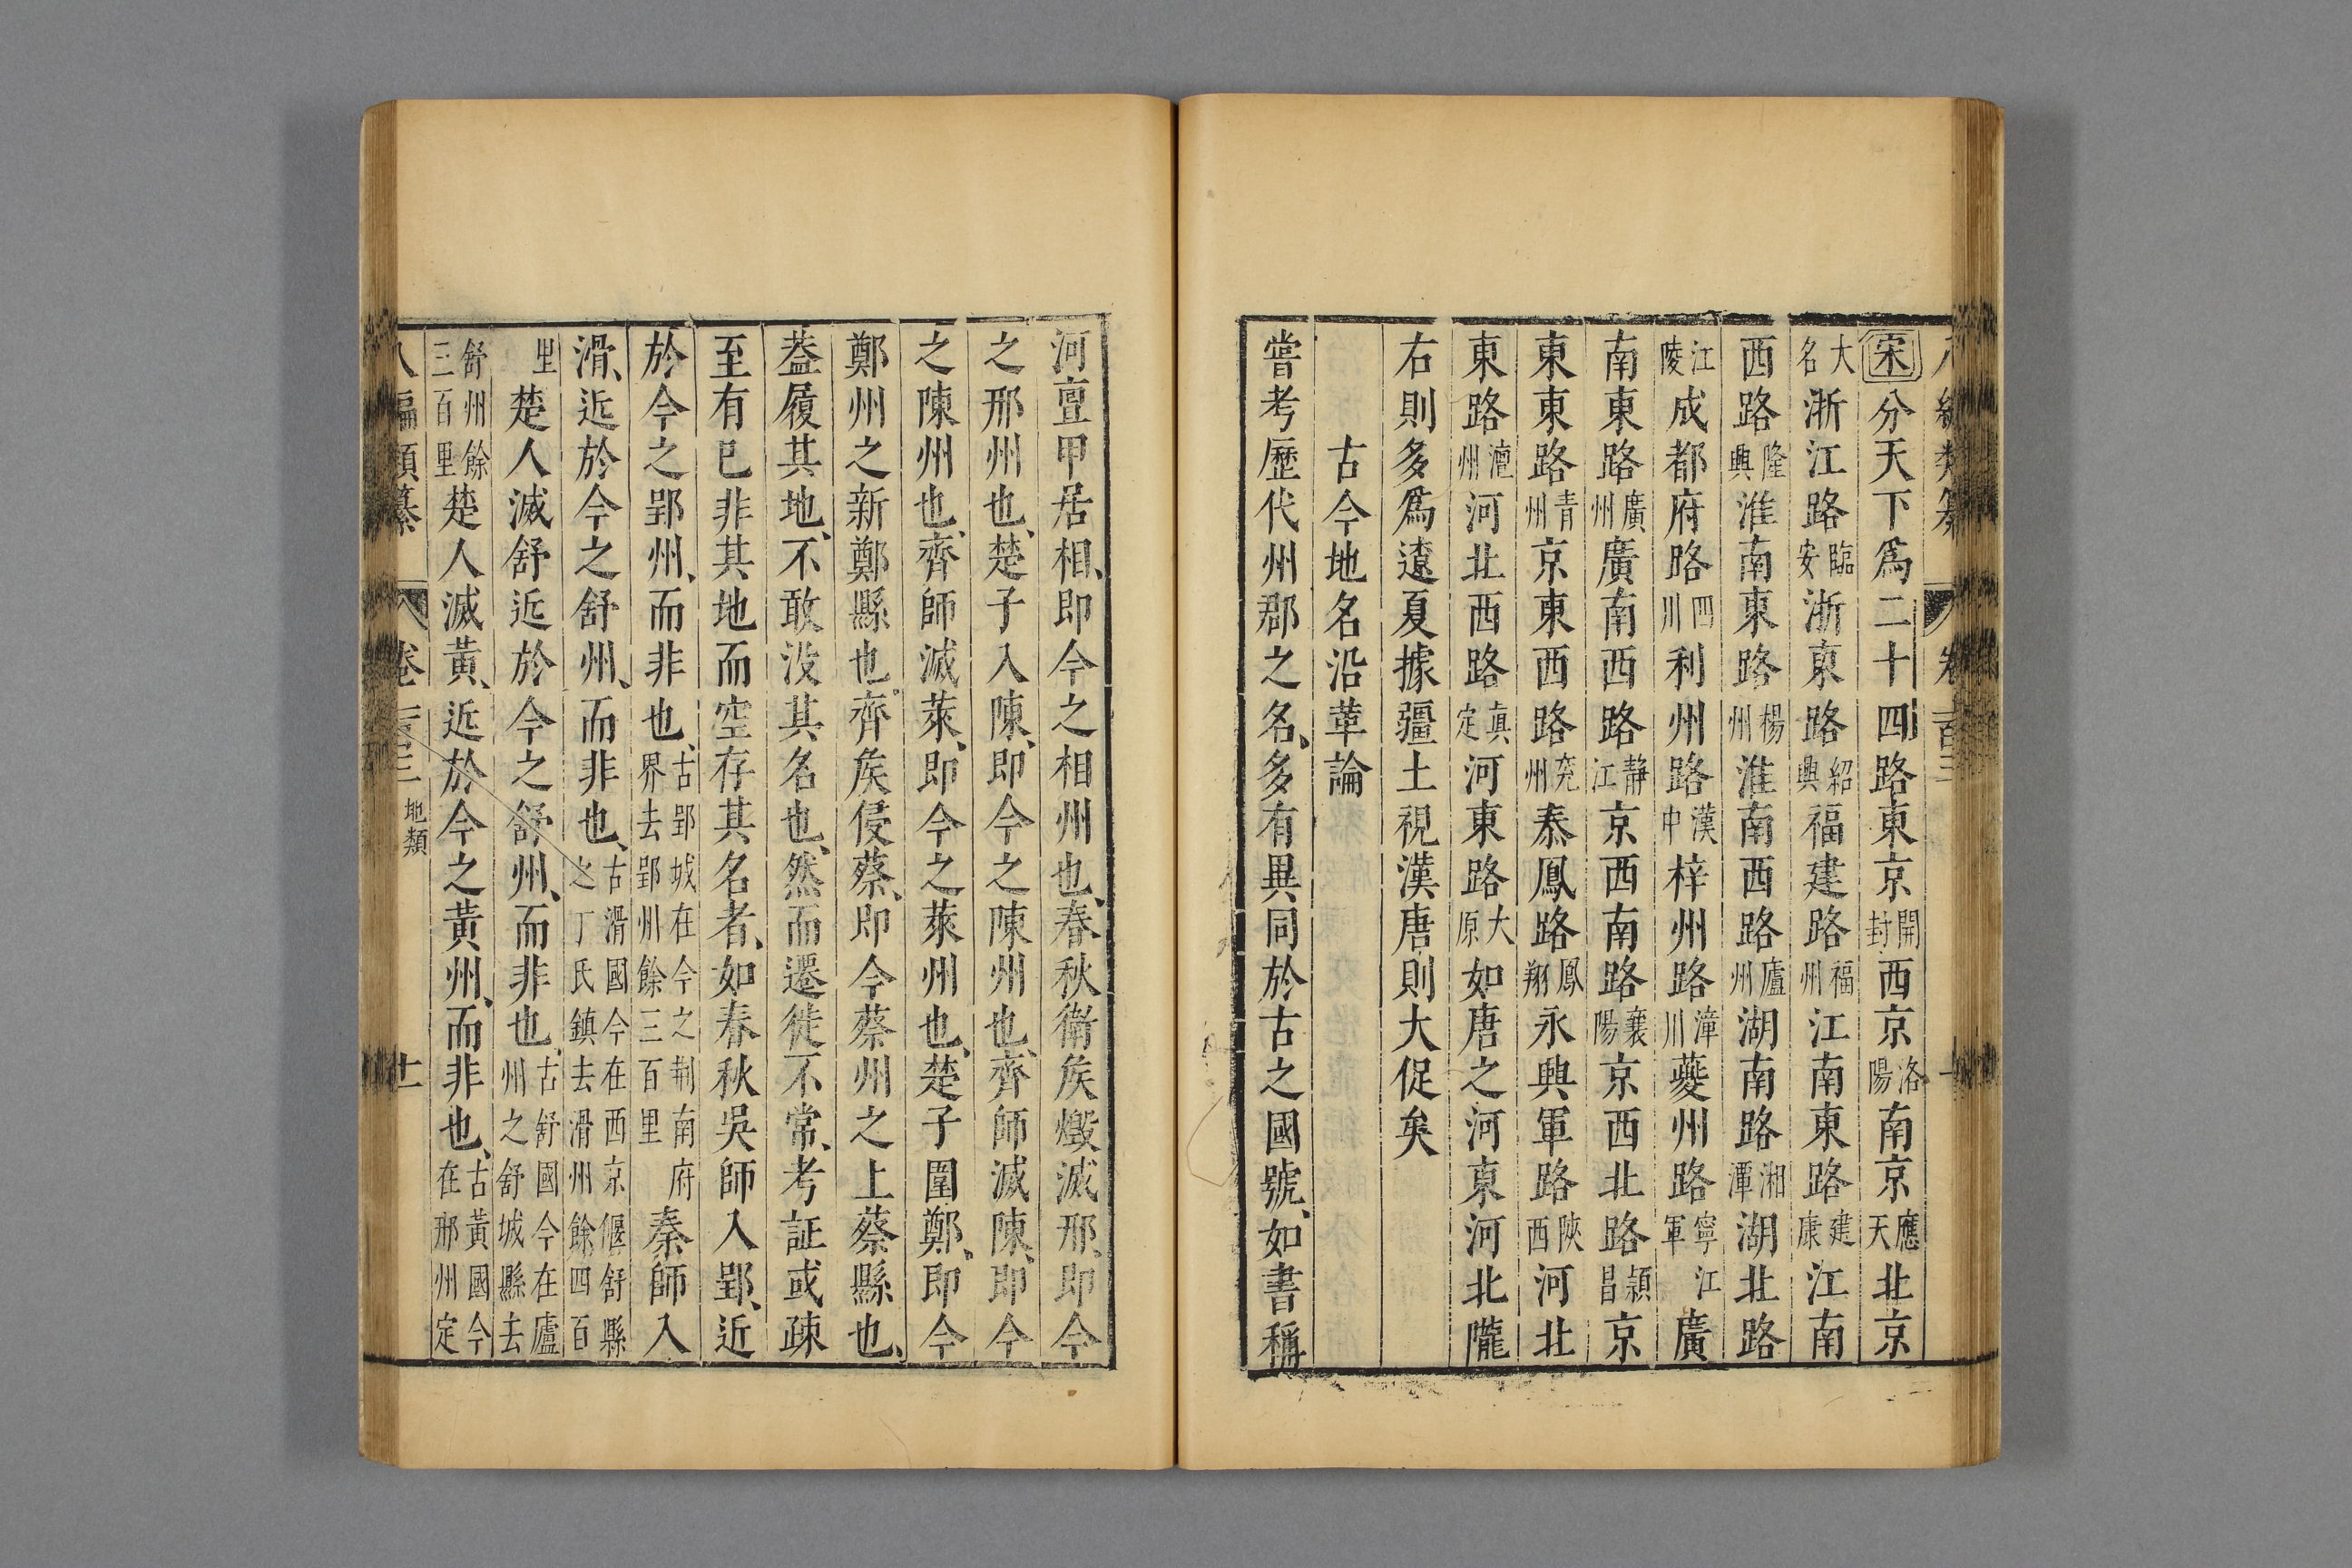 宋分天下爲二十四路東京開封西京洛陽南京應天北京
大名浙江路臨安浙東路紹興福建路福州江南東路建康江南
西路隆興淮南東路楊州淮南西路廬州湖南路湘潭湖北路
江陵成都府路四川利州路漢中梓州路潼川夔州路寧江軍廣
南東路廣州廣南西路靜江京西南路襄陽京西北路潁昌京
東東路青州京東西路兖州秦鳳路鳳翔永興軍路陝西河北
東路滬州河北西路真定河東路大原如唐之河東河北隴
右則多爲遼夏據疆土視漢唐則大促矣
古今地名沿革論
嘗考歷代州郡之名、多有異同於古之國號、如書稱
河亶甲居相、即今之相州也、春秋衛矦燬滅邢、即今
之邢州也、楚子入陳、即今之陳州也、齊師滅陳、即今
之陳州也、齊師滅萊、即今之萊州也、楚子圍鄭、即今
鄭州之新鄭縣也、齊矦侵蔡、即今蔡州之上蔡縣也、
葢履其地、不敢没其名也、然而遷徙不常、考証或疎
至有已非其地而空存其名者、如春秋吳師入郢、近
於今之郢州、而非也、古郢城在今之荆南府界去郢州餘三百里秦師入
滑、近於今之舒州、而非也、古滑國今在西京偃舒縣之丁氏鎮去滑州餘四百
里楚人滅舒近於今之舒州、而非也、古舒國今在廬州之舒城縣去
舒州餘三百里楚人滅黃、近於今之黃州、而非也、古黃國今在邢州定
八編類纂 卷一百三 地類 十一